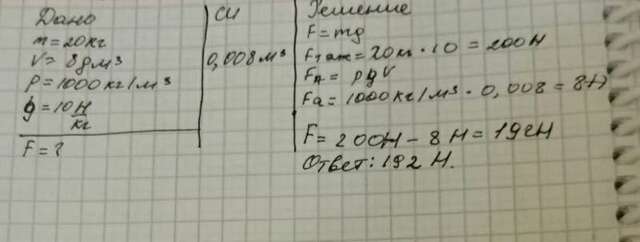 Дано
m = 20кг
V = 8дм³
ρ = 1000кг/м³
g = 10 Н/кг
F = ?
СИ
0,008м³
Решение
F = mg
Fтяж = 20кг · 10 = 200Н
FA = ρgV
Fa = 1000кг/м³ · 0,008 = 8Н
F = 200Н - 8Н = 192Н
Ответ: 192 Н.